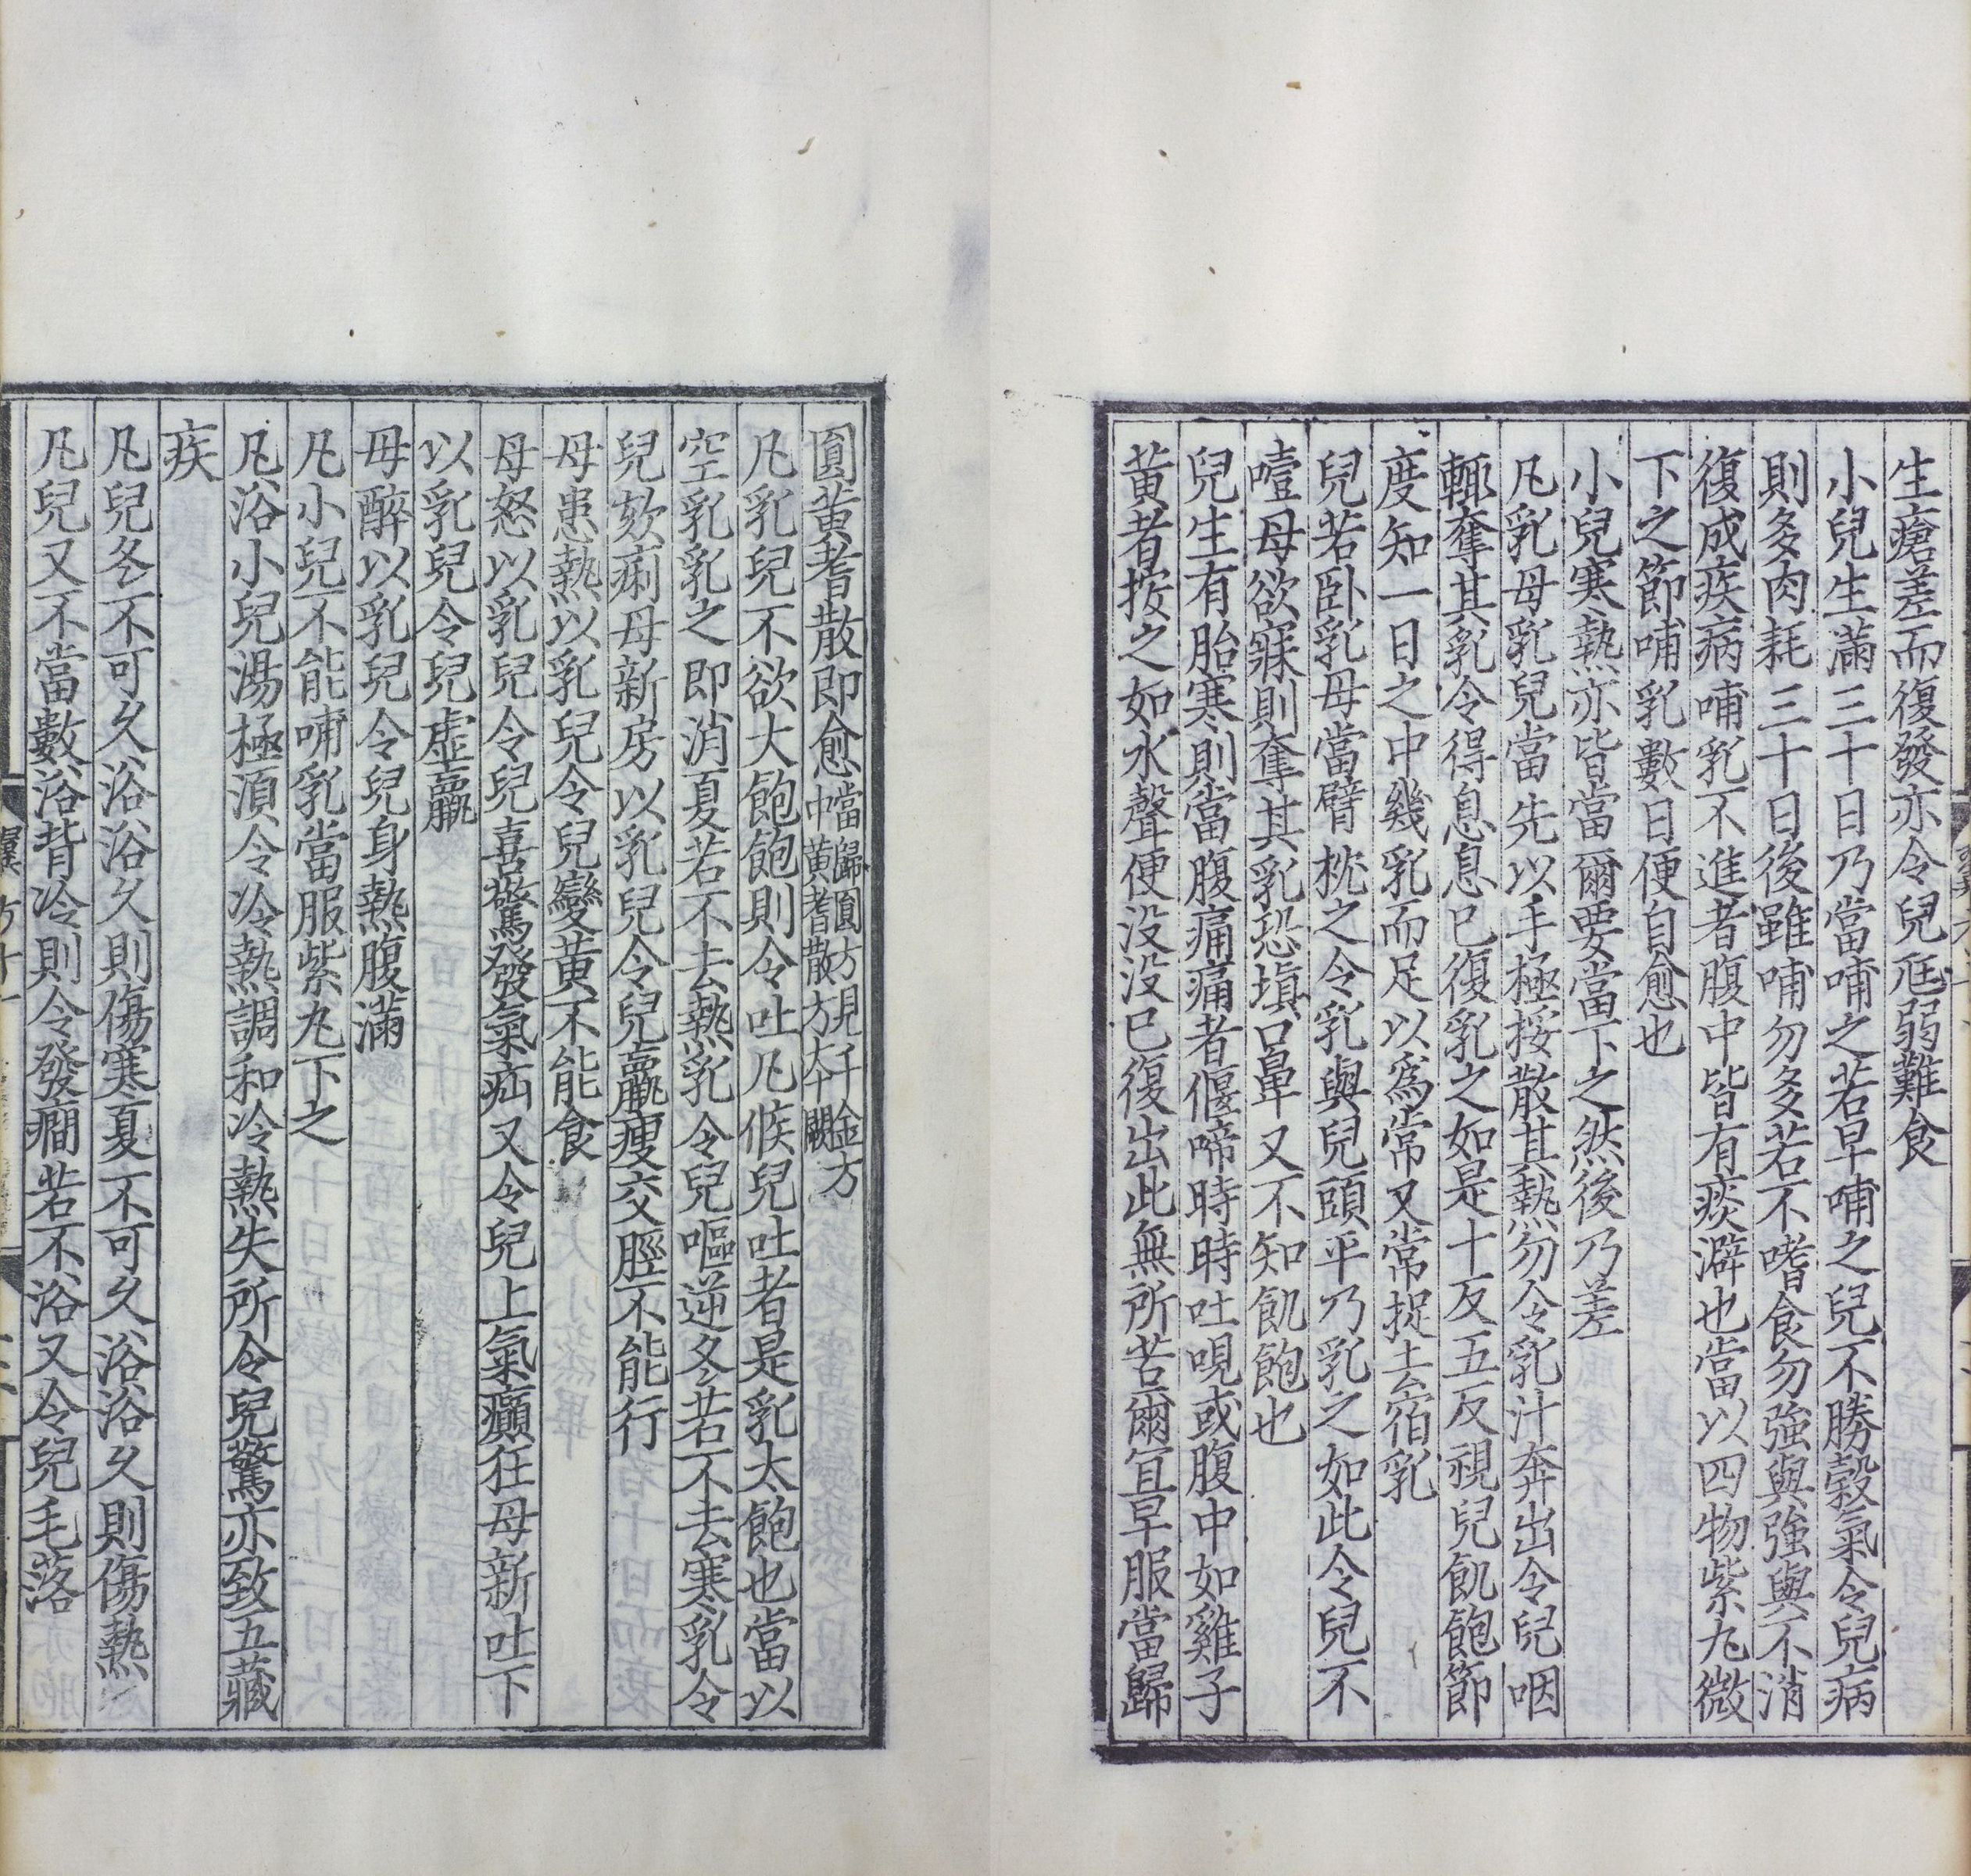 生瘡差而復發亦令兒尫弱難食
小兒生滿三十日乃當哺之若早哺之兒不勝穀氣令兒病
則多肉耗三十日後雖哺勿多若不嗜食勿強與強與不消
復成疾病哺乳不進者腹中皆有痰澼也當以四物紫丸微
下之節哺乳數日便自愈也
小兒寒熱亦皆當爾要當下之然後乃差
凡乳母乳兒當先以手極挼散其熱勿令乳汁奔出令兒咽
輙奪其乳令得息息已復乳之如是十反五反視兒飢飽節
度知一日之中幾乳而足以爲常又常捉去宿乳
兒若卧乳母當臂枕之令乳與兒頭平乃乳之如此令兒不
噎母欲寐則奪其乳恐塡口鼻又不知飢飽也
兒生有胎寒則當腹痛痛者偃啼時時吐哯或腹中如雞子
黃者按之如水聲便没没已復出此無所苦爾冝早服當歸
圓黃耆散即愈當歸圓方見千金方中黃耆散方本闕
凡乳兒不欲大飽飽則令吐凡候兒吐者是乳太飽也當以
空乳乳之即消夏若不去熱乳令兒嘔逆冬若不去寒乳令
兒欬痢母新房以乳兒令兒羸瘦交脛不能行
母患熱以乳兒令兒變黃不能食
母怒以乳兒令兒喜驚發氣疝又令兒上氣癲狂母新吐下
以乳兒令兒虛羸
母醉以乳兒令兒身熱腹滿
凡小兒不能哺乳當服紫丸下之
凡浴小兒湯極湏令冷熱調和冷熱失所令兒驚亦致五藏
疾
凡兒冬不可久浴浴久則傷寒夏不可久浴浴久則傷熱
凡兒又不當數浴背冷則令發癇若不浴又令兒毛落